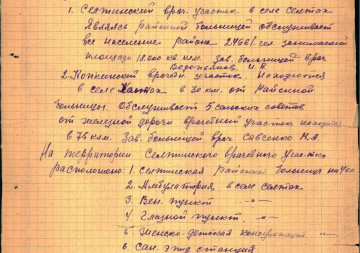 1. Селтинский врач. участок в селе Селтах
Являясь районной больницей обслуживает
все население района 24661 чел. занимаемой
площади 1000 кв. клм. Зав. больницей врач
Водожянов И. Н.
2. Копкинский врачебн участок находится
в селе в 30 клм. от Районной
больницы. Обслуживает 5 сельских советов
от железной дороги врачебный участок находится
в 76 клм. Зав. больницей врач Савсенко М. А.
На территории Селтинского врачебного участка
расположено: 1. Селтинская районная больница на 40 к.
2. Амбулатория, в селе Селтах
3. Вен. пункт —"—
4. Глазной пункт, —"—
5. Женско-детская консультация —"—
6. Сан. эпид станция